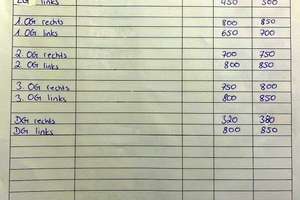 EG links 450 500
1. OG rechts 800 850
1. OG links 650 700
2. OG rechts 700 750
2. OG links 800 850
3. OG rechts 750 800
3. OG links 800 850
DG rechts 320 380
DG links 800 850